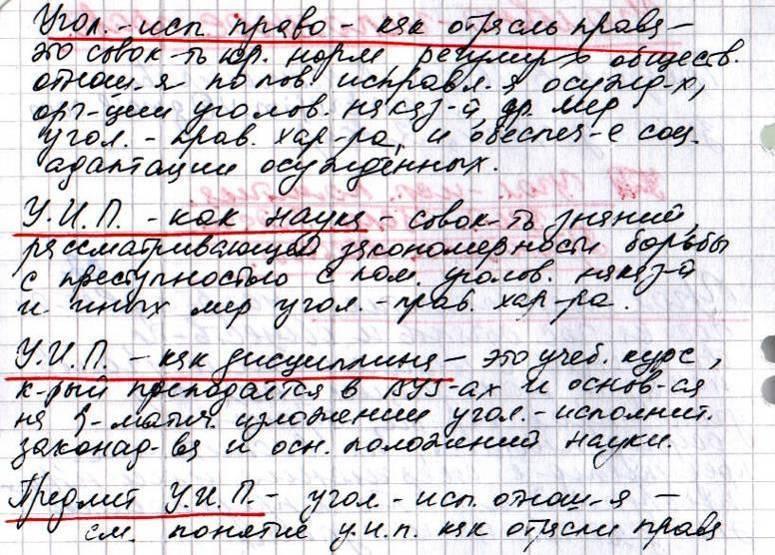 Угол.-исп. право - как отрасль права -
это совок-ть юр. норм, регулир-х обществ.
отнош-я по пов. исправл-я осужд-х,
орг-ции уголов. наказ-й, др. мер
угол.-прав. хар-ра, и обеспеч-е соц.
адаптации осуждённых.
У.И.П. - как наука - совок-ть знаний,
рассматривающей закономерности борьбы
с преступностью с пом. уголов. наказ-й
и иных мер угол.-прав. хар-ра.
У.И.П. - как дисциплина - это учеб. курс,
к-рый преподаётся в ВУЗ-ах и основ-ся
на изложении угол.-исполнит.
законод-ва и осн. положений науки.
Предмет У.И.П. - угол.-исп. отнош-я -
см. понятие у.и.п. как отрасли права